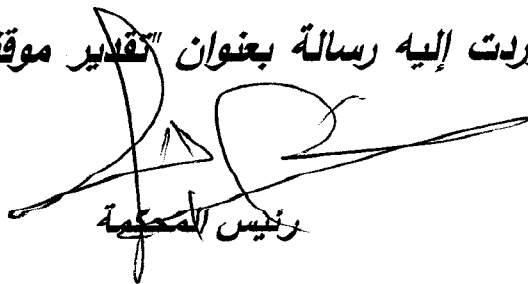 ردت إليه رسالة بعنوان "تقدير موقف
رئيس المحكمة